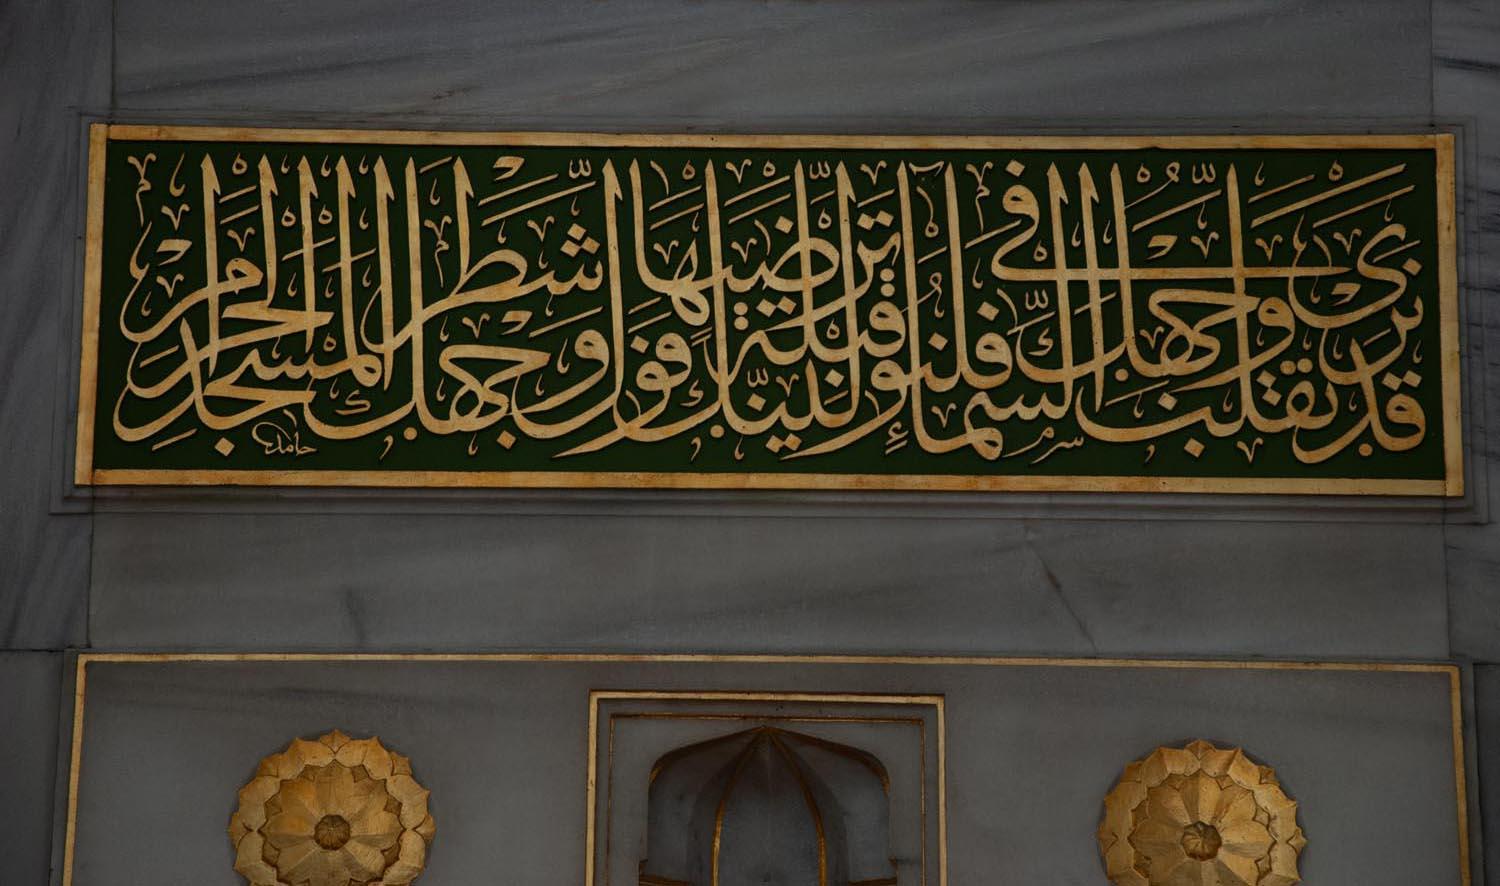 قَدْ نَرٰى تَقَلُّبَ وَجْهِكَ فِي السَّمَاءِ فَلَنُوَلِّيَنَّكَ قِبْلَةً تَرْضٰيهَا فَوَلِّ وَجْهَكَ شَطْرَ الْمَسْجِدِ الْحَرَامِ
حامد